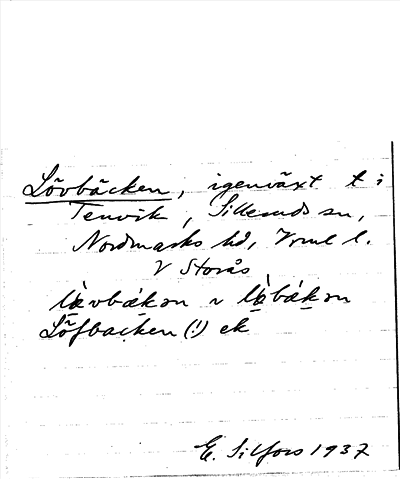 Lövbäcken, igenväxt t i
Tenvik, Silleruds sn,
Nordmarks hd, Vrml l.
V Storås
làvbákən ~ làbákən
Löfbacken (!) ek
E. Silfors 1937